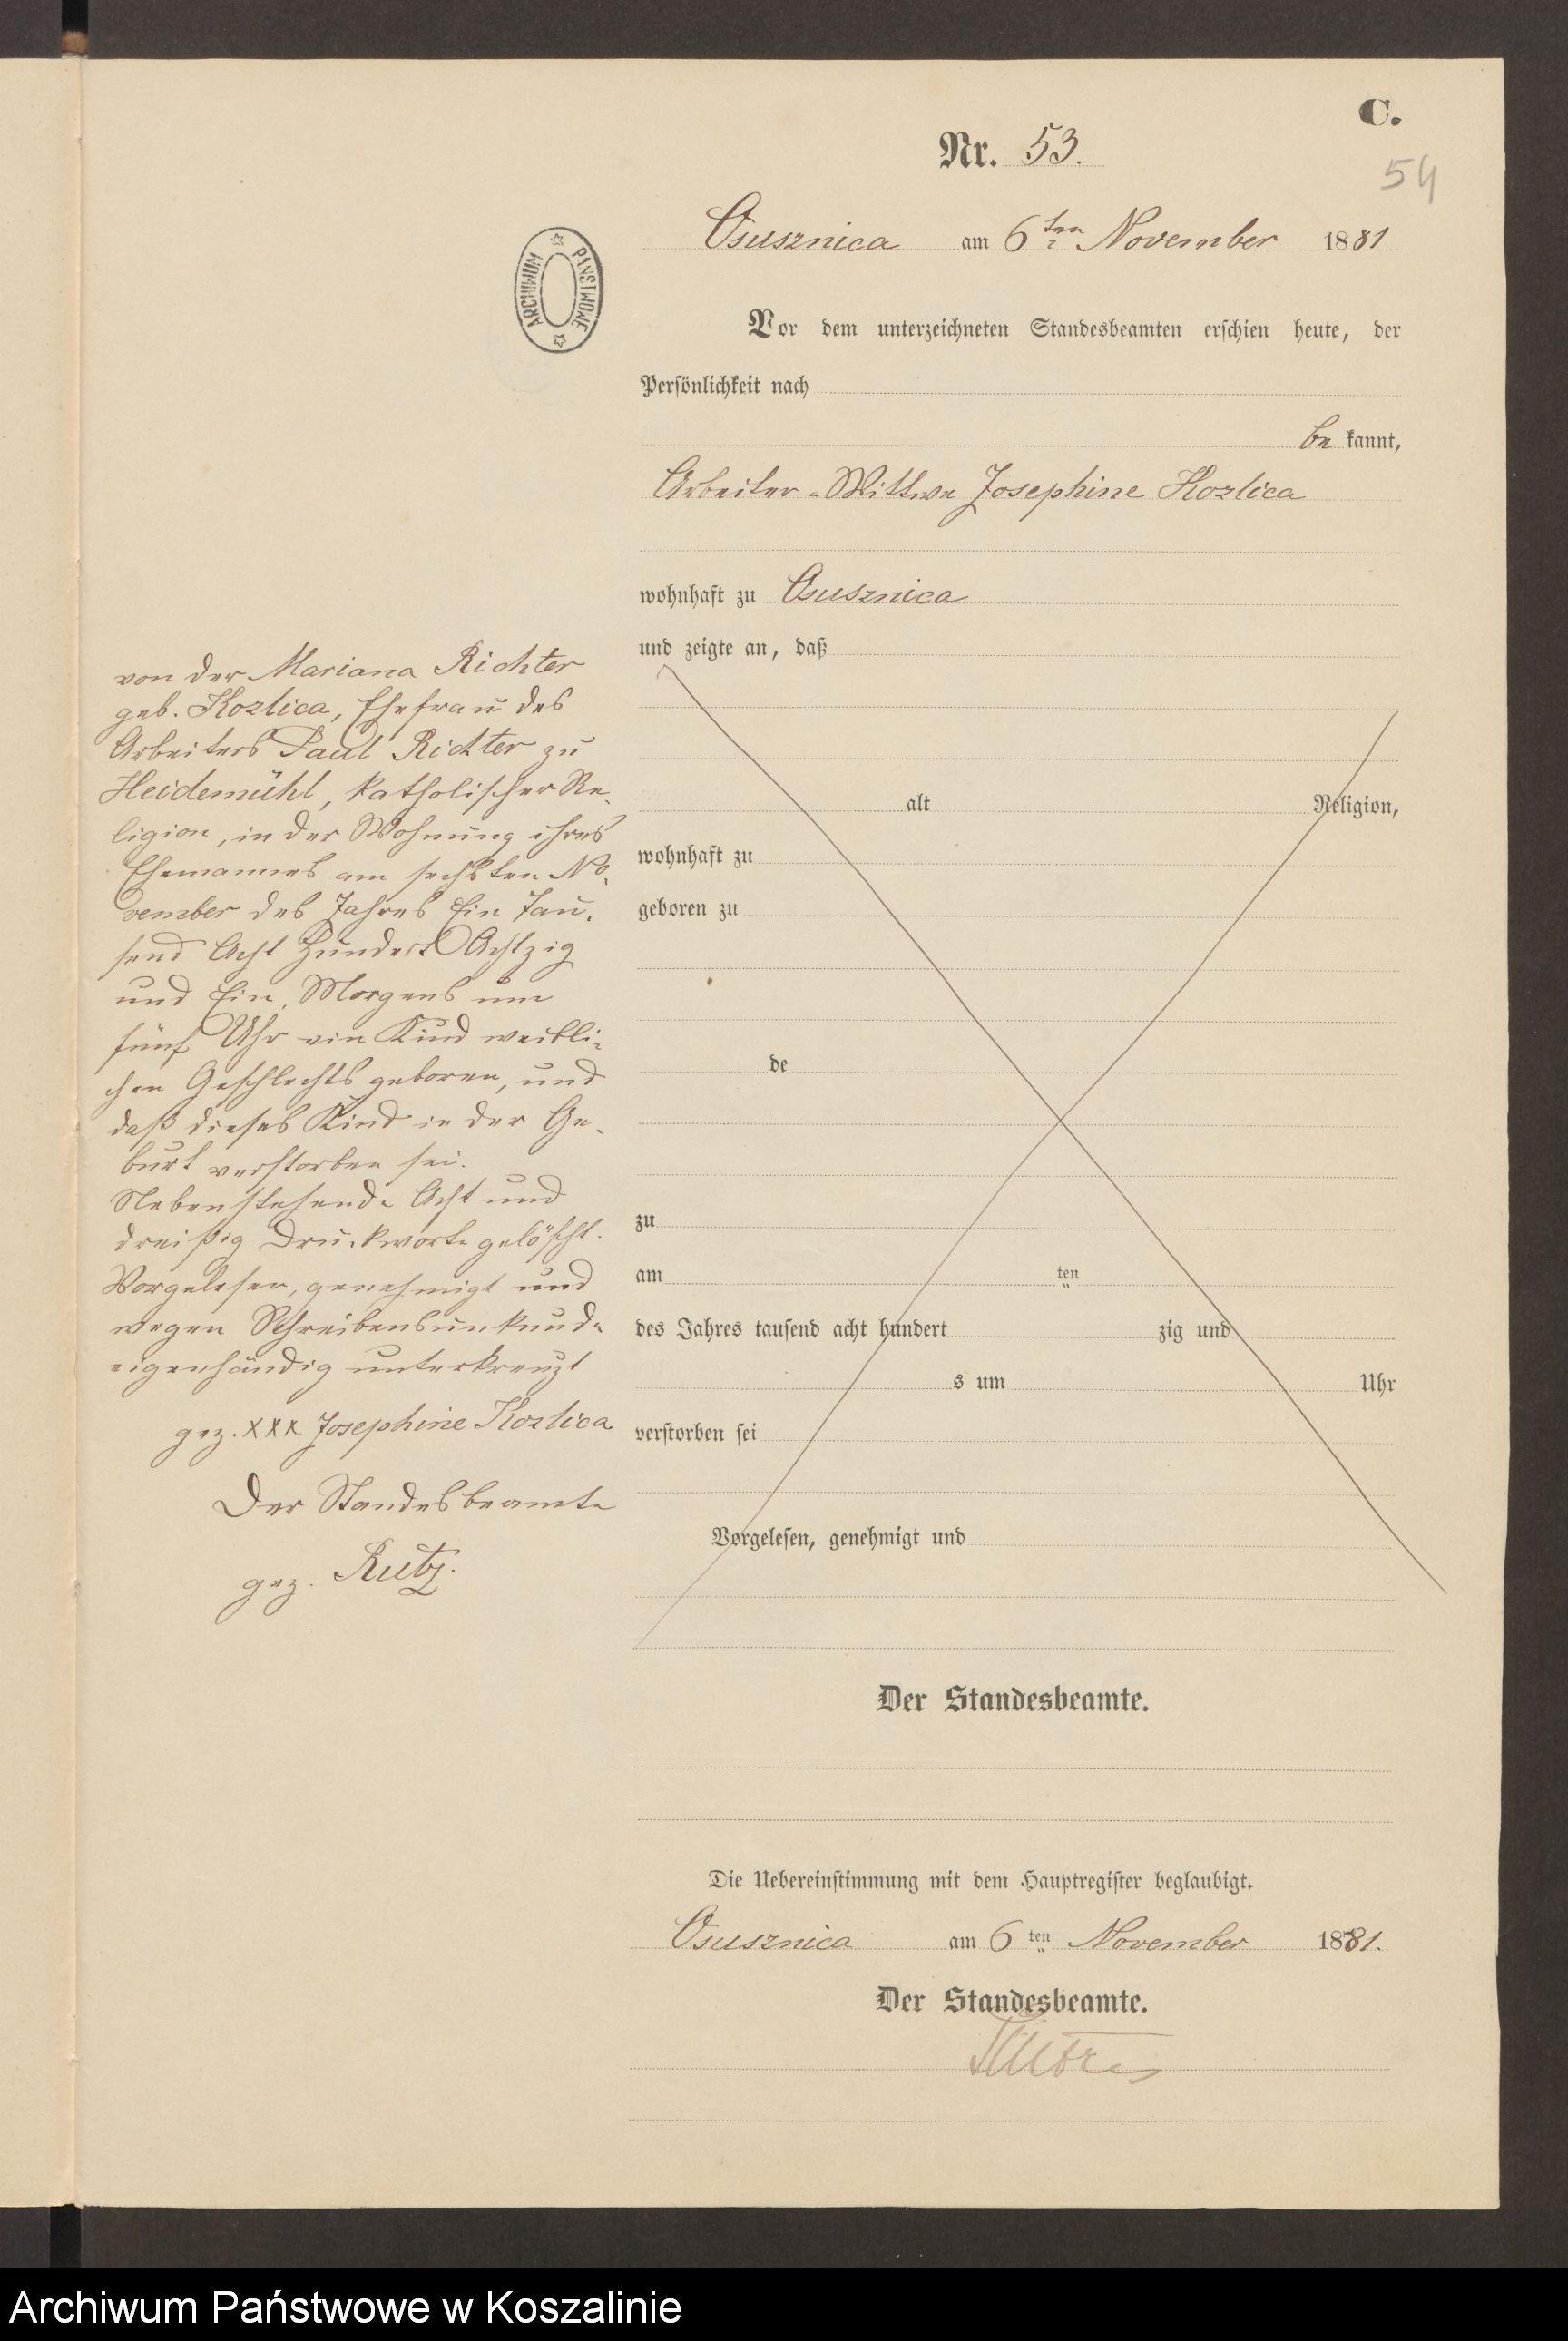 C.
Nr. 53.
54
Osusznica am 6ten November 1881
ARCHIWUM PAŃSTWOWE
Vor dem unterzeichneten Standesbeamten erschien heute, der
Persönlichkeit nach
be kannt,
Arbeiter-Wittwe Josephine Kozlica
wohnhaft zu Osusznica
und zeigte an, daß
von der Mariana Richter
geb. Kozlica, Ehefrau des
Arbeiters Paul Richter zu
Heidemühl, katholischer Re-
ligion, in der Wohnung ihres
Ehemannes am sechsten No-
vember des Jahres Ein Tau-
send Acht Hundert Achtzig
und Ein, Morgens um
fünf Uhr ein Kind weibli-
chen Geschlechts geboren, und
daß dieses Kind in der Ge-
burt verstorben sei.
Nebenstehende Acht und
dreißig Druckworte gelöscht.
Vorgelesen, genehmigt und
wegen Schreibensunkunde
eigenhändig unterkreuzt
gez. XXX Josephine Kozlica
Der Standesbeamte
gez. Rutz.
alt Religion,
wohnhaft zu
geboren zu
de
zu
am ten
des Jahres tausend acht hundert zig und
s um Uhr
verstorben sei
Vorgelesen, genehmigt und
Der Standesbeamte.
Die Uebereinstimmung mit dem Hauptregister beglaubigt.
Osusznica am 6 ten November 1881.
Der Standesbeamte.
Archiwum Państwowe w Koszalinie